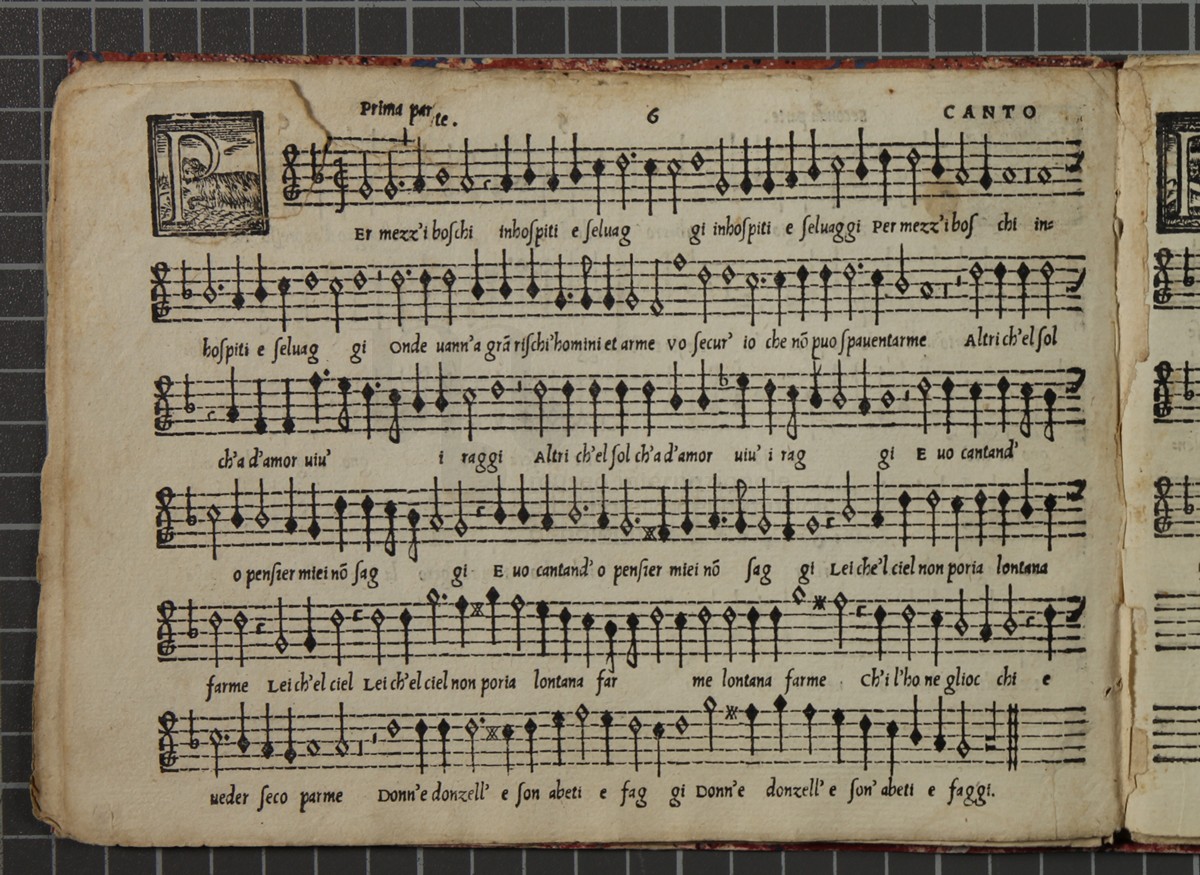 Prima parte. 6 CANTO
PEr mezz'i boschi inhospiti e seluag gi inhospiti e seluaggi Per mezz'i bos chi in=
hospiti e seluag gi Onde uann'a grã rischi'homini et arme Vo secur' io che nõ puo spauentarme Altri ch'el sol
ch'a d'amor uiu' i raggi Altri ch'el sol ch'a d'amor uiu' i rag gi E uo cantand'
o pensier miei nõ sag gi E uo cantand' o pensier miei nõ sag gi Lei che'l ciel non poria lontana
farme Lei ch'el ciel Lei ch'el ciel non poria lontana far me lontana farme Ch'i l'ho ne glioc chi e
ueder seco parme Donn'e donzell' e son abeti e fag gi Donn'e donzell' e son' abeti e faggi.